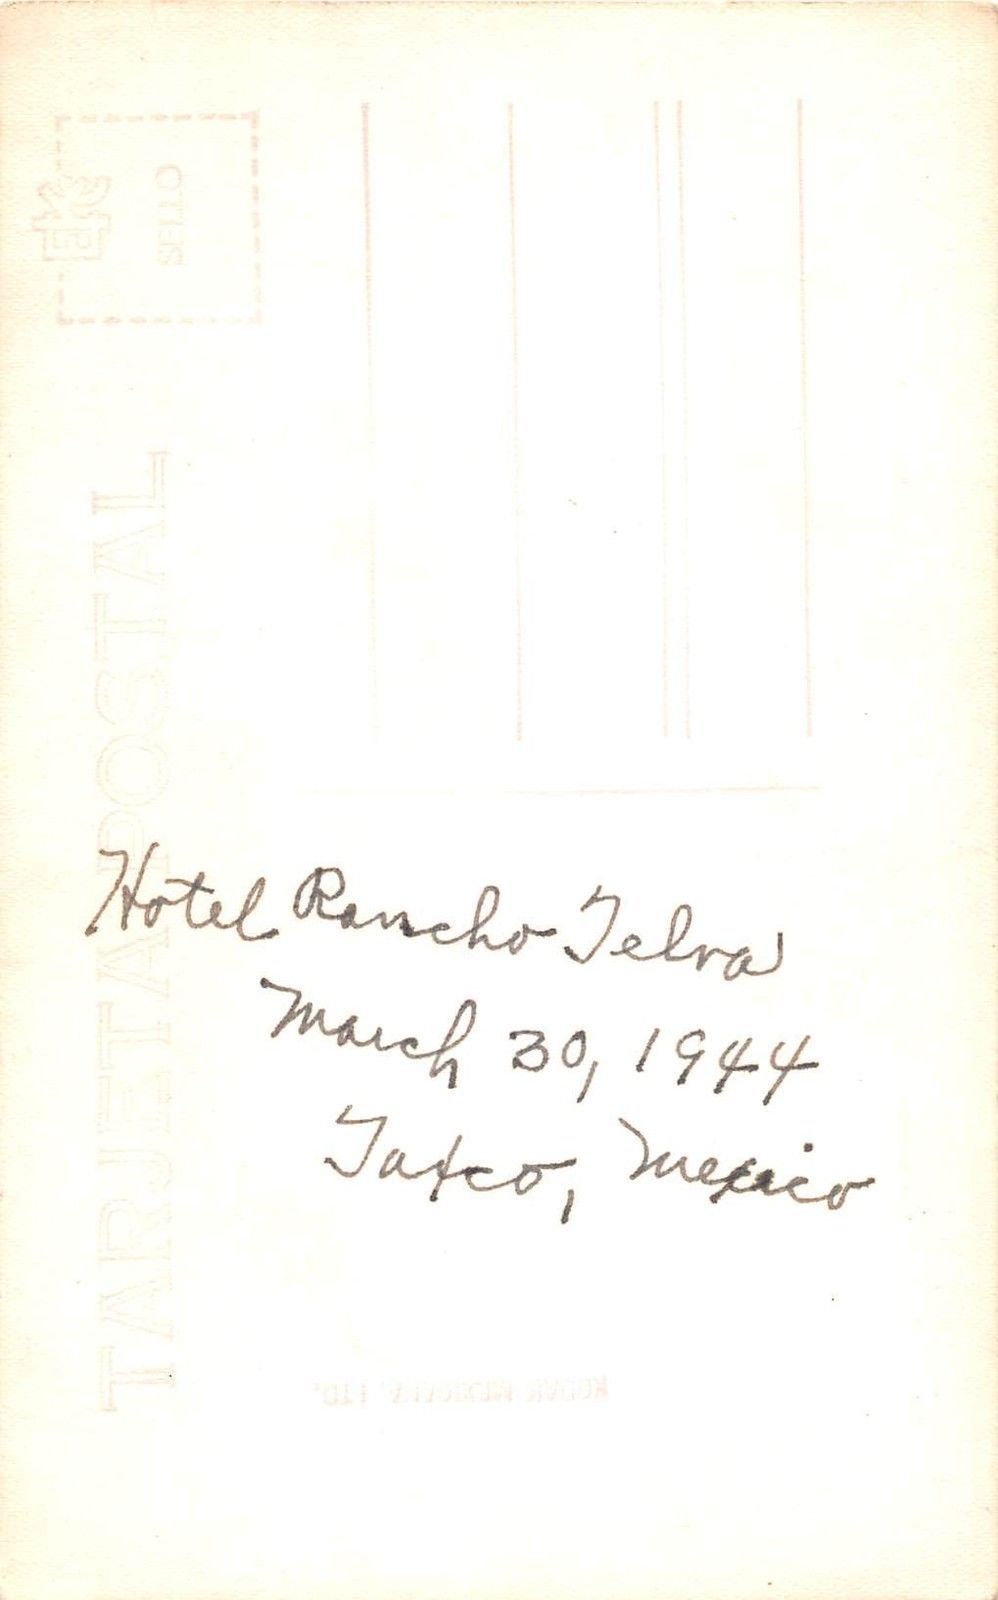 SELLO
TARJETA POSTAL
Hotel Rancho Telva
March 30, 1944
Taxco, Mexico
KODAK MEXICANA LTD.